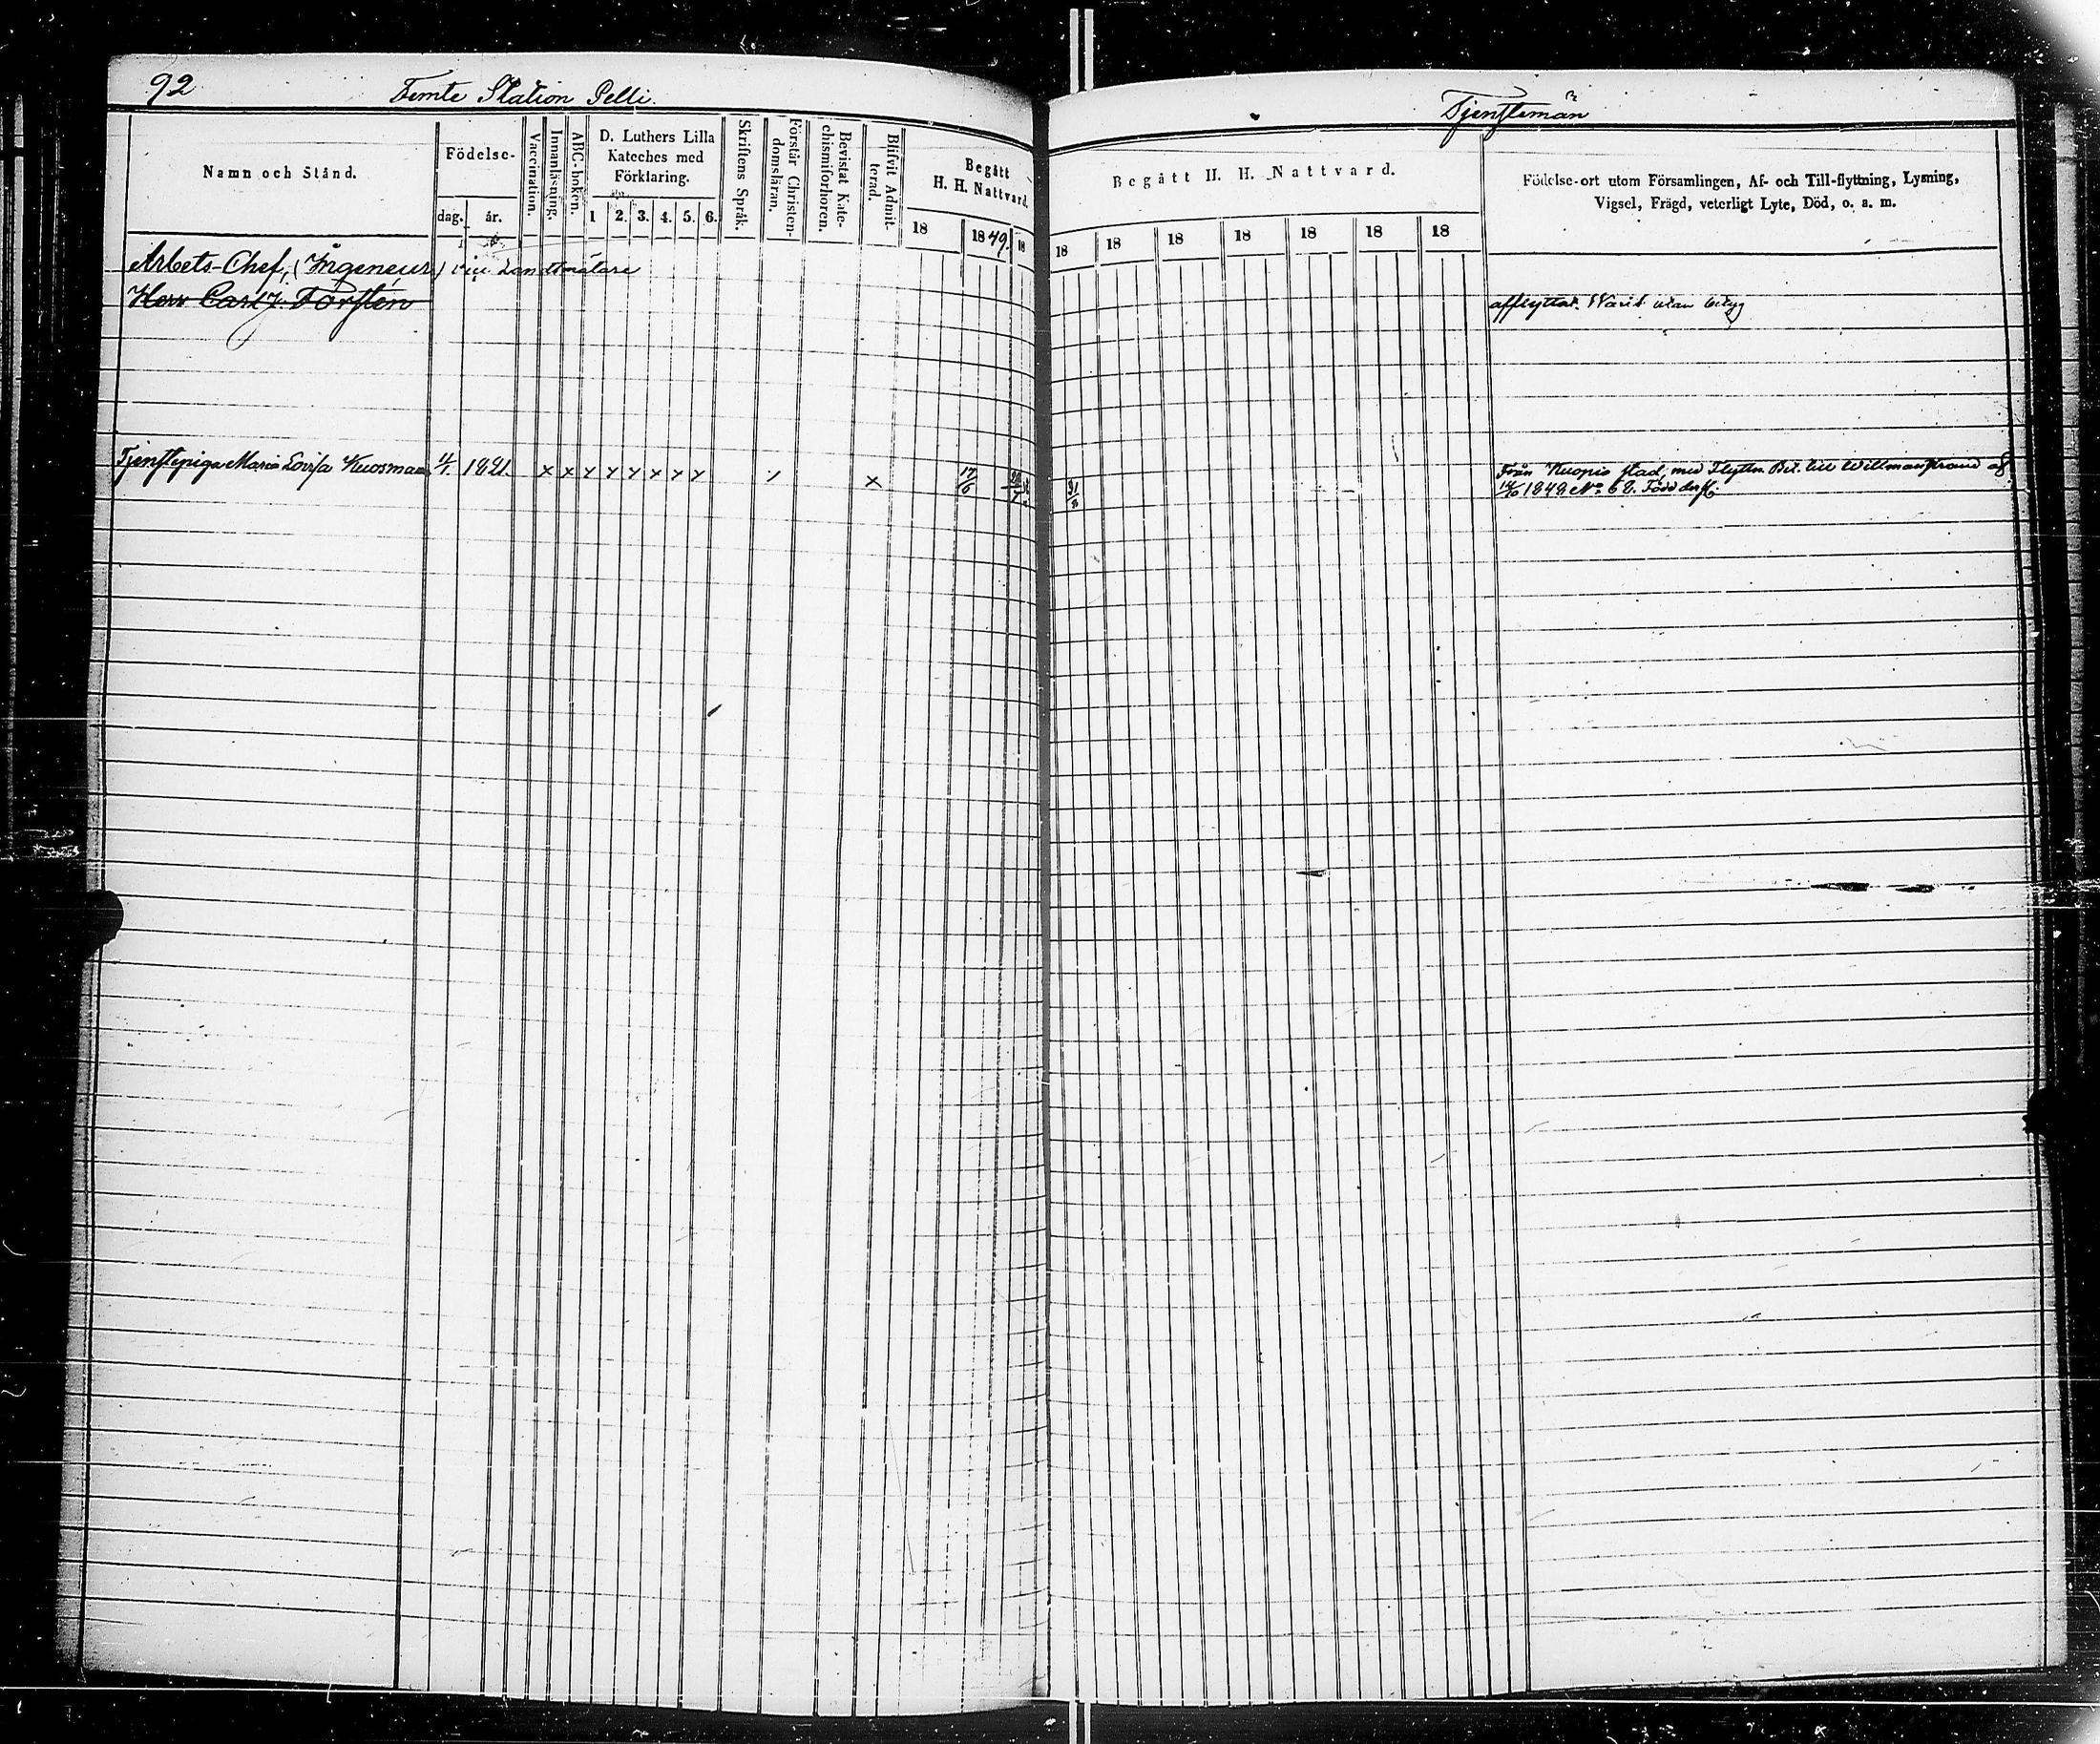 92
Femte Station Pelli.
Tjenstemän
Namn och Stånd.
Födelse-
dag.
år.
Vaccination.
Innanläsning.
ABC-boken.
D. Luthers Lilla
Kateches med
Förklaring.
1 2. 3. 4. 5. 6.
Skriftens Språk.
Förstår Christen-
domsläran.
Bevistat Kate-
chismiförhören.
Blifvit Admit-
terad.
Begått
H. H. Nattvard.
18 1849. 18
Begått H. H. Nattvard.
18 18 18 18 18 18 18
Födelse-ort utom Församlingen, Af- och Till-flyttning, Lysning,
Vigsel, Frägd, veterligt Lyte, Död, o. s. m.
Arbets-Chef, (Ingeneur) vice Landtmätare
Herr Carl J. Forstén
afflyttat. Warit utan betyg
Tjenstepiga Maria Lovisa Kuosman 11/1. 1821. x x x x x x x x x 17/6 31/8
Från Kuopio stad, med Flyttn. Bet. till Willmanstrand af
1848 No 68. Född ders.